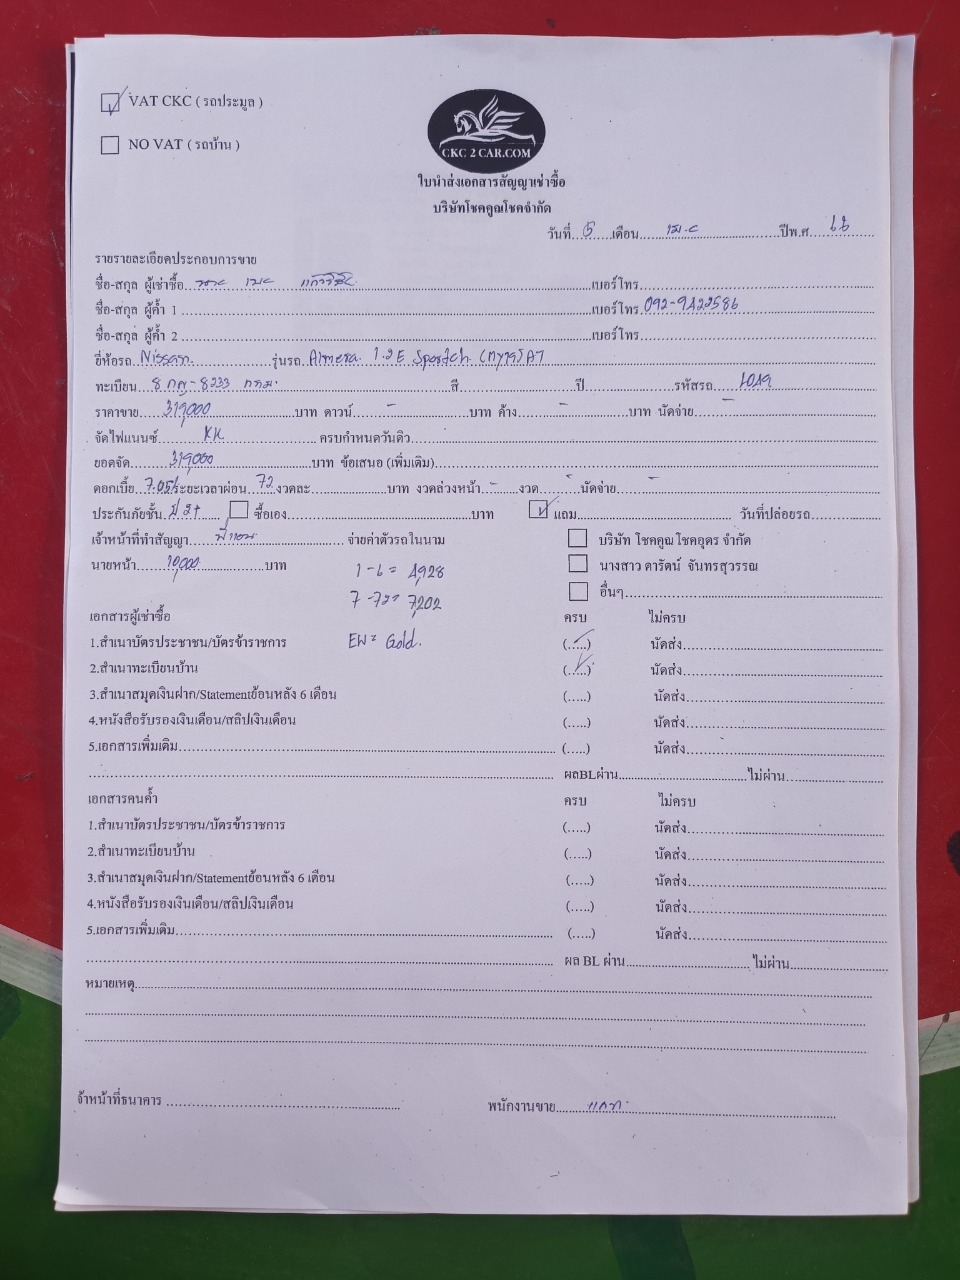 VAT CKC ( รถประมูล )
NO VAT ( รถบ้าน )
CKC 2 CAR.COM
ใบนำส่งเอกสารสัญญาเช่าซื้อ
บริษัทโชคคูณโชคจำกัด
วันที่ 5 เดือน เม.ย ปีพ.ศ 66
รายรายละเอียดประกอบการขาย
ชื่อ-สกุล ผู้เช่าซื้อ เบอร์โทร
ชื่อ-สกุล ผู้ค้ำ 1 เบอร์โทร. 092-9422586
ชื่อ-สกุล ผู้ค้ำ 2 เบอร์โทร
ยี่ห้อรถ Nissan. รุ่นรถ Almera. 1.2 E Sportech (MY19) AT
ทะเบียน 8 กญ-8233 กทม. สี ปี รหัสรถ 1049
ราคาขาย 319,000 บาท ดาวน์ - บาท ค้าง - บาท นัดจ่าย -
จัดไฟแนนซ์ KK ครบกำหนดวันดิว
ยอดจัด 319,000 บาท ข้อเสนอ (เพิ่มเติม)
ดอกเบี้ย 7.05% ระยะเวลาผ่อน 72 งวดละ บาท งวดล่วงหน้า - งวด - นัดจ่าย -
ประกันภัยชั้น ป 2+ ซื้อเอง บาท แถม วันที่ปล่อยรถ
เจ้าหน้าที่ทำสัญญา จ่ายค่าตัวรถในนาม บริษัท โชคคูณโชคอุดร จำกัด
นายหน้า 10,000 บาท 1-6 = 4,928 นางสาว ดารัตน์ จันทรสุวรรณ
7-72 = 7,202 อื่นๆ
เอกสารผู้เช่าซื้อ ครบ ไม่ครบ
1.สำเนาบัตรประชาชน/บัตรข้าราชการ EW = Gold. (.....) นัดส่ง
2.สำเนาทะเบียนบ้าน (.....) นัดส่ง
3.สำเนาสมุดเงินฝาก/Statementย้อนหลัง 6 เดือน (.....) นัดส่ง
4.หนังสือรับรองเงินเดือน/สลิปเงินเดือน (.....) นัดส่ง
5.เอกสารเพิ่มเติม (.....) นัดส่ง
ผลBLผ่าน ไม่ผ่าน
เอกสารคนค้ำ ครบ ไม่ครบ
1.สำเนาบัตรประชาชน/บัตรข้าราชการ (.....) นัดส่ง
2.สำเนาทะเบียนบ้าน (.....) นัดส่ง
3.สำเนาสมุดเงินฝาก/Statementย้อนหลัง 6 เดือน (.....) นัดส่ง
4.หนังสือรับรองเงินเดือน/สลิปเงินเดือน (.....) นัดส่ง
5.เอกสารเพิ่มเติม (.....) นัดส่ง
ผล BL ผ่าน ไม่ผ่าน
หมายเหตุ
จ้าหน้าที่ธนาคาร พนักงานขาย